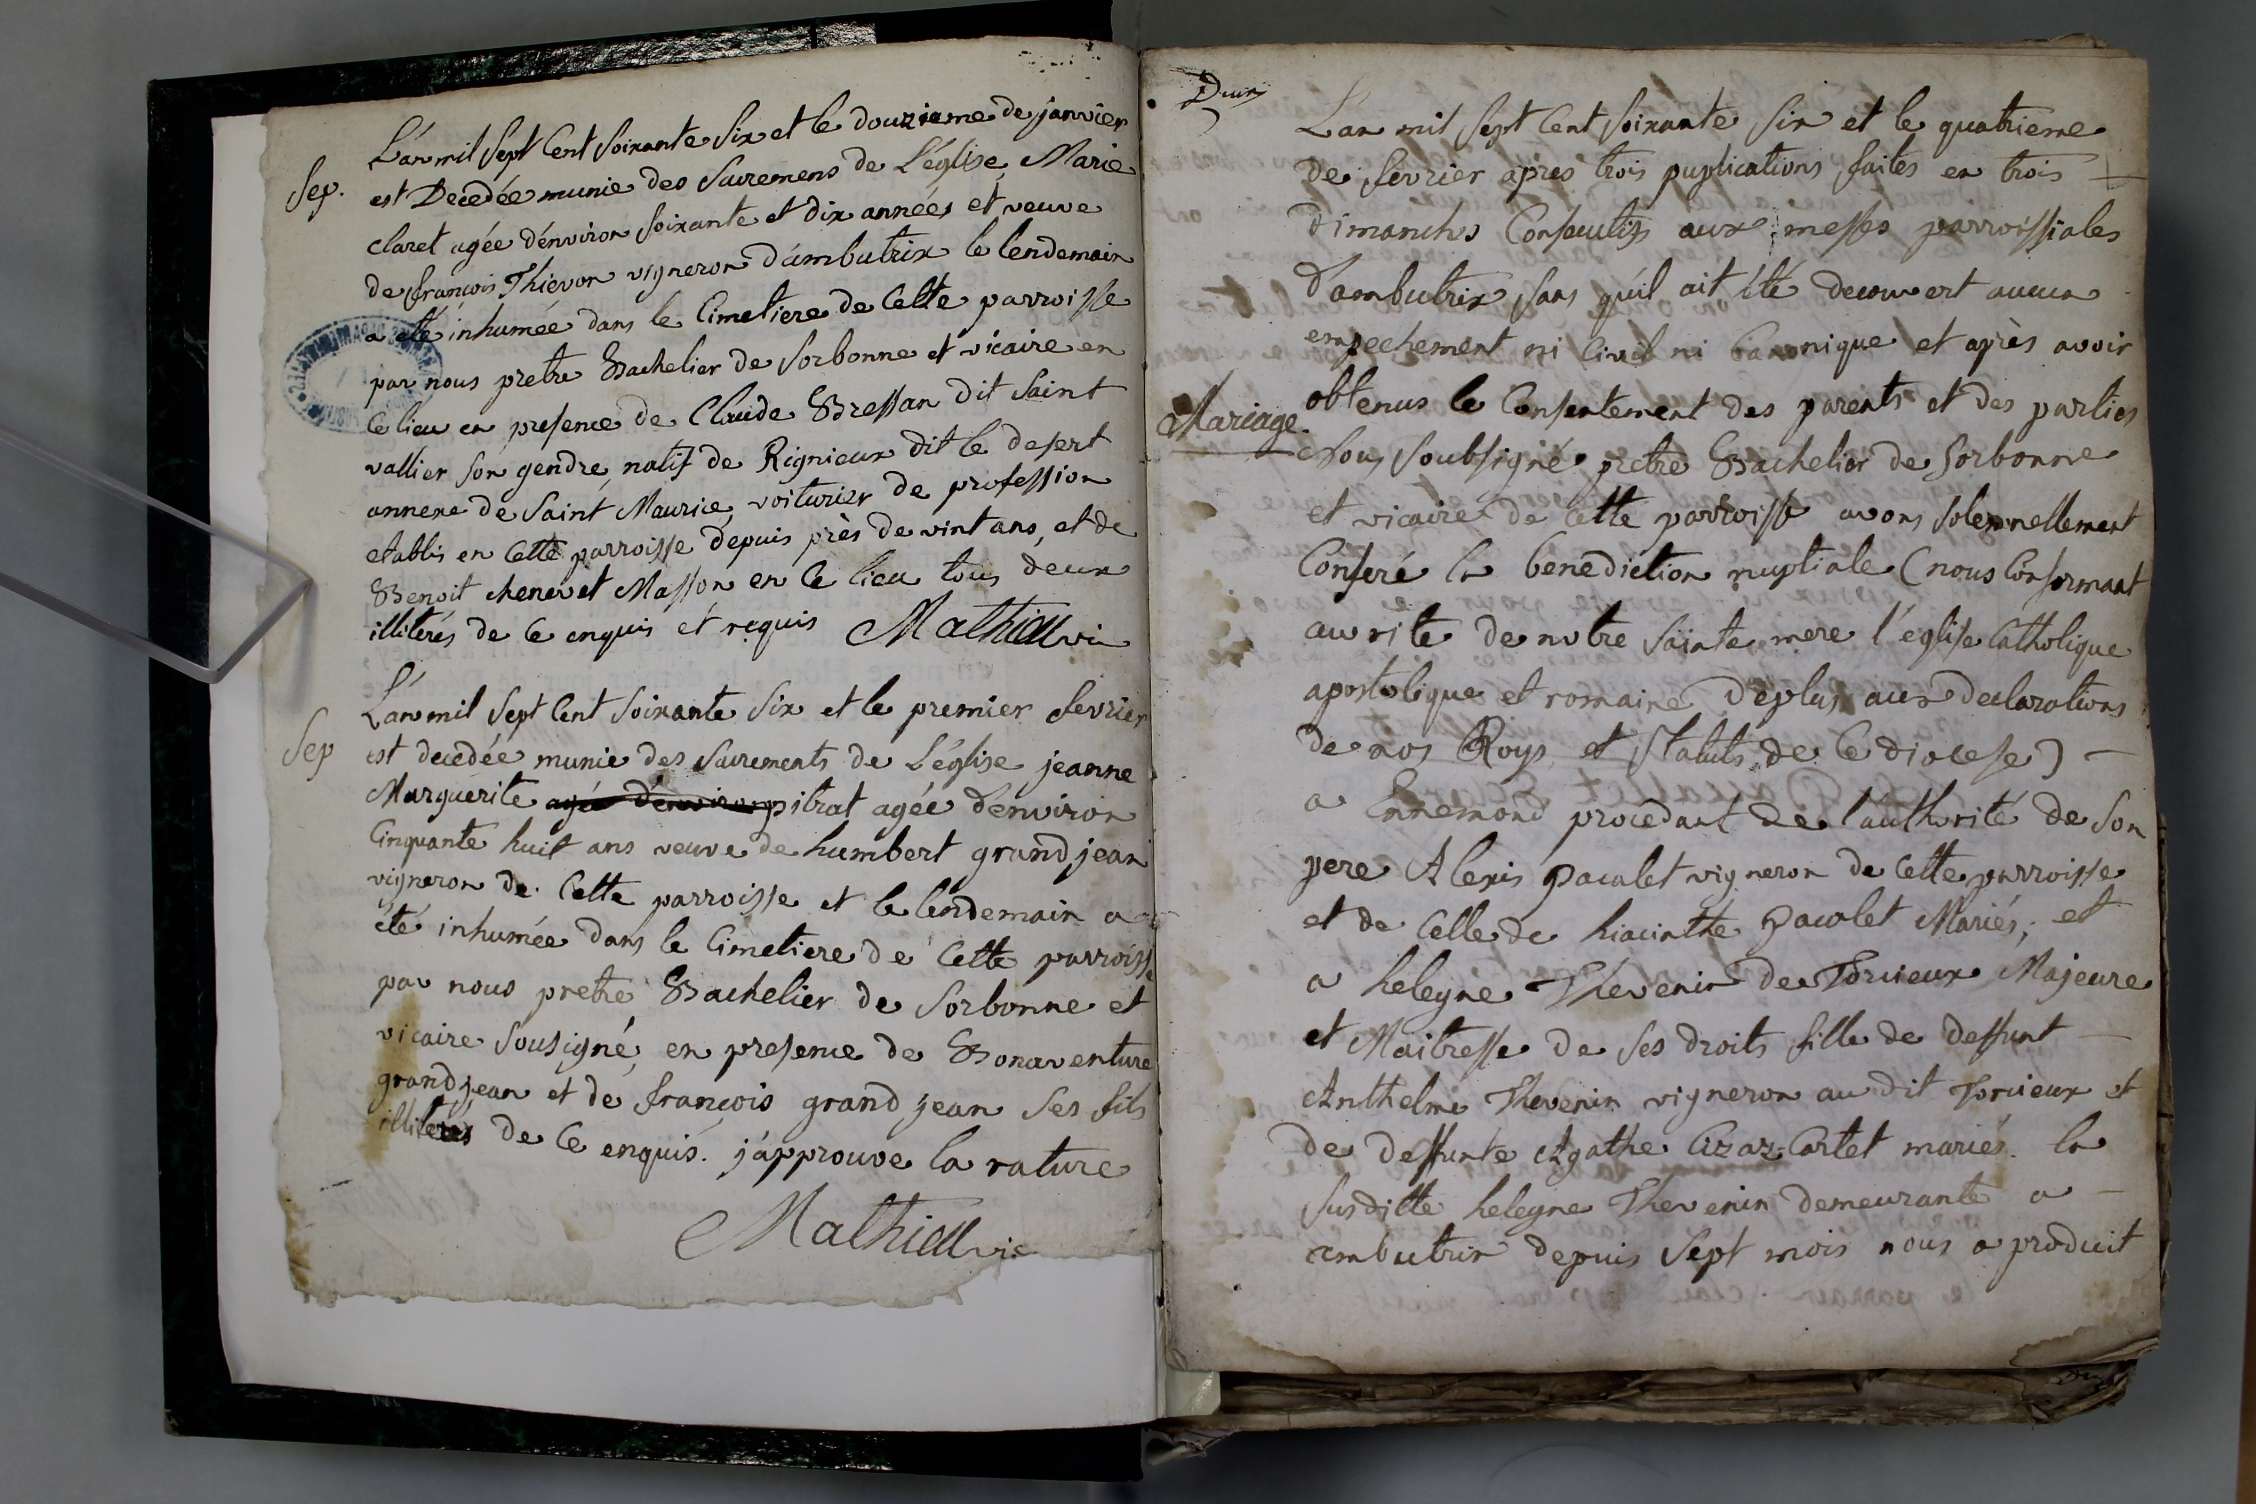 L'an mil sept cent soixante six et le douzieme de janvier
Sep.
est Decedée munie des Sacremens de L'église Marie
claret agée d'environ soixante et dix années et veuve
de françois Thievon vigneron d'ambutrix le lendemain
a eté inhumée dans le Cimetiere de Cette parroisse
par nous pretre Bachelier de Sorbonne et vicaire en
Ce lieu en presence de Claude Bressan dit Saint
vallier son gendre natif de Rignieux dit le desert
annexe de Saint Maurice, voiturier de profession
etablis en Cette parroisse depuis près de vint ans, et de
Benoit chenevet Masson en Ce lieu tous deux
illiterés de Ce enquis et requis Mathieu vic
L'an mil sept Cent soixante six et le premier fevrier
Sep
est decedée munie des Sacrements de L'église jeanne
Marguerite agée d'environ pitrat agée d'environ
Cinquante huit ans veuve de humbert grand jean
vigneron de Cette parroisse et le lendemain a
été inhumée dans le Cimetiere de Cette parroisse
par nous pretre Bachelier de Sorbonne et
vicaire sousigné, en presence de Bonaventure
grand jean et de françois grand jean ses fils
illiterés de Ce enquis. j'approuve la rature
Mathieu vic
Deux
L'an mil sept Cent soixante six et le quatrieme
de fevrier après trois puplications faites en trois
dimanchs Consecutifs aux messes parroissiales
d'ambutrix sans qu'il ait été decouvert aucun
empechement ni Civil ni Canonique et après avoir
obtenus le Consentement des parents et des parties
Mariage.
Nous soubsigné pretre Bachelier de Sorbonne
et vicaire de Cette parroisse avons solemnellement
Conferé la benediction nuptiale (nous Conformant
au rite de notre sainte mere l'eglise Catholique
apostolique et romaine deplus aux declarations
de nos Roys et statuts de Ce diocese)
a Ennemond procedant de l'authorité de son
pere Alexis Pacalet vigneron de Cette parroisse
et de Celle de hiacinthe Pacalet Mariés; et
a helegne Thevenin de Torcieux Majeure
et Maitresse de ses droits fille de deffunt
Anthelme Thevenin vigneron au dit Torcieux et
de deffunte Agathe Cartet mariés. la
susditte helegne Thevenin demeurante a
ambutrix depuis sept mois nous a produit